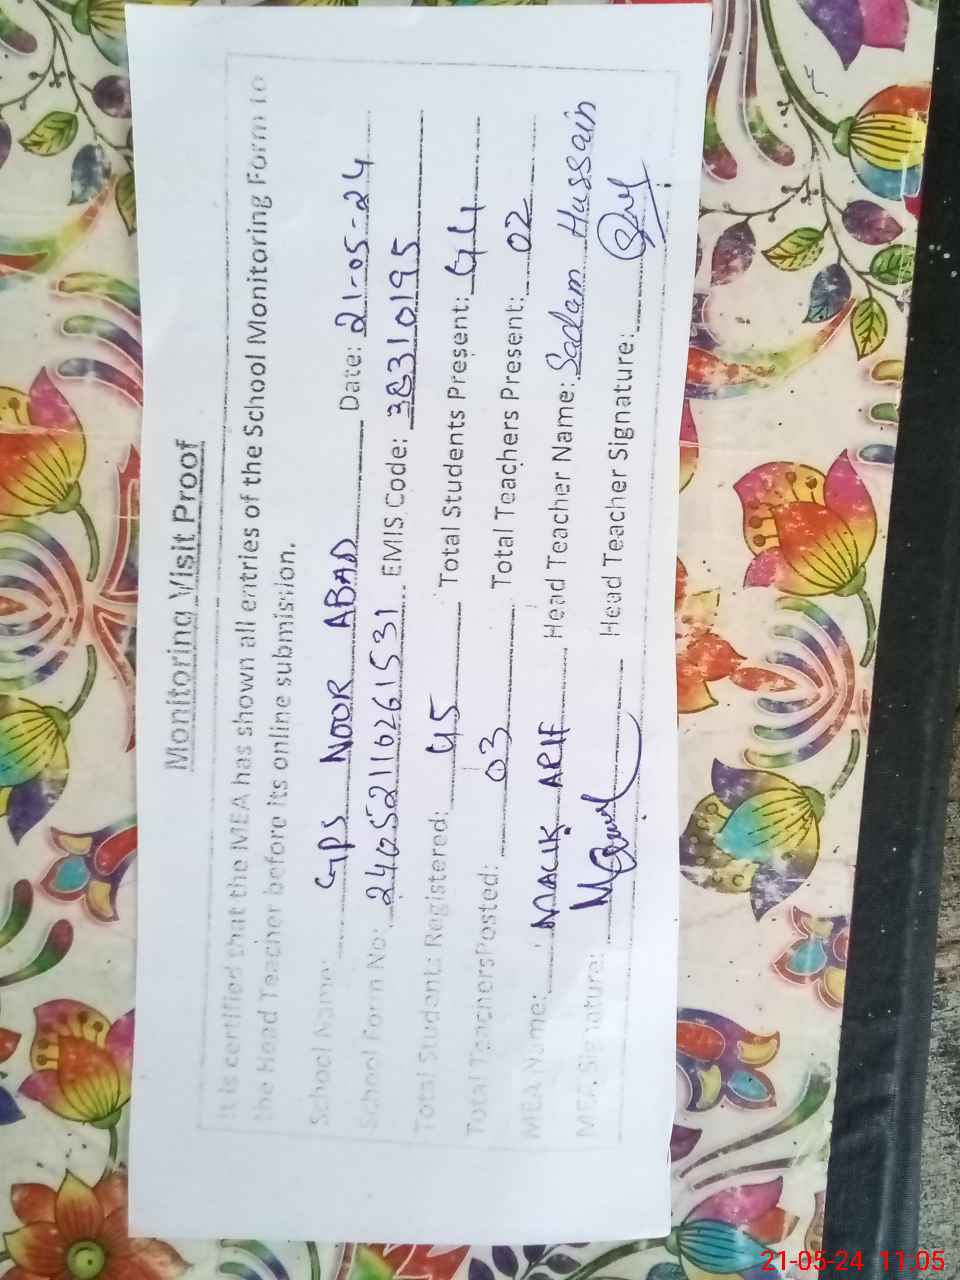 Monitoring Visit Proof
It is certified that the MEA has shown all entries of the School Monitoring Form to
the Head Teacher before its online submistion.
School Name: GPS NOOR ABAD Date: 21-05-24
School Form No: 24052110261531 EMIS Code: 38310195
Total Students Registered: 45 Total Students Present:
Total Teachers Posted: 03 Total Teachers Present: 02
MEA Name: MALIK ARIF Head Teacher Name: Sadam Hussain
MEA Signature: Head Teacher Signature:
21-05-24 11:05